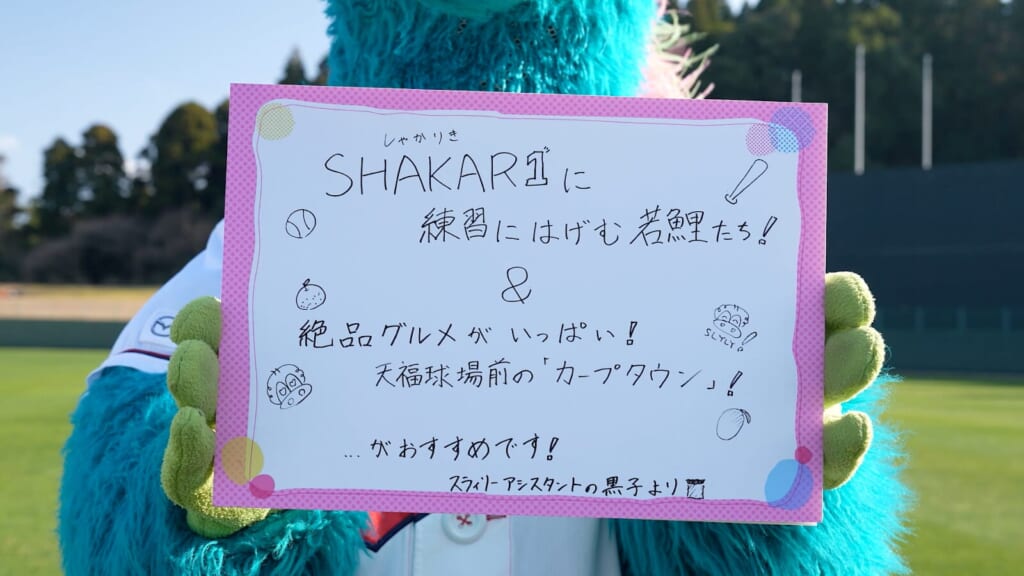 しゃかりき
SHAKAR1に
練習にはげむ若鯉たち!
&
絶品グルメがいっぱい!
天福球場前の「カープタウン」!
SLYLY!
...がおすすめです!
スラィリーアシスタントの黒子より